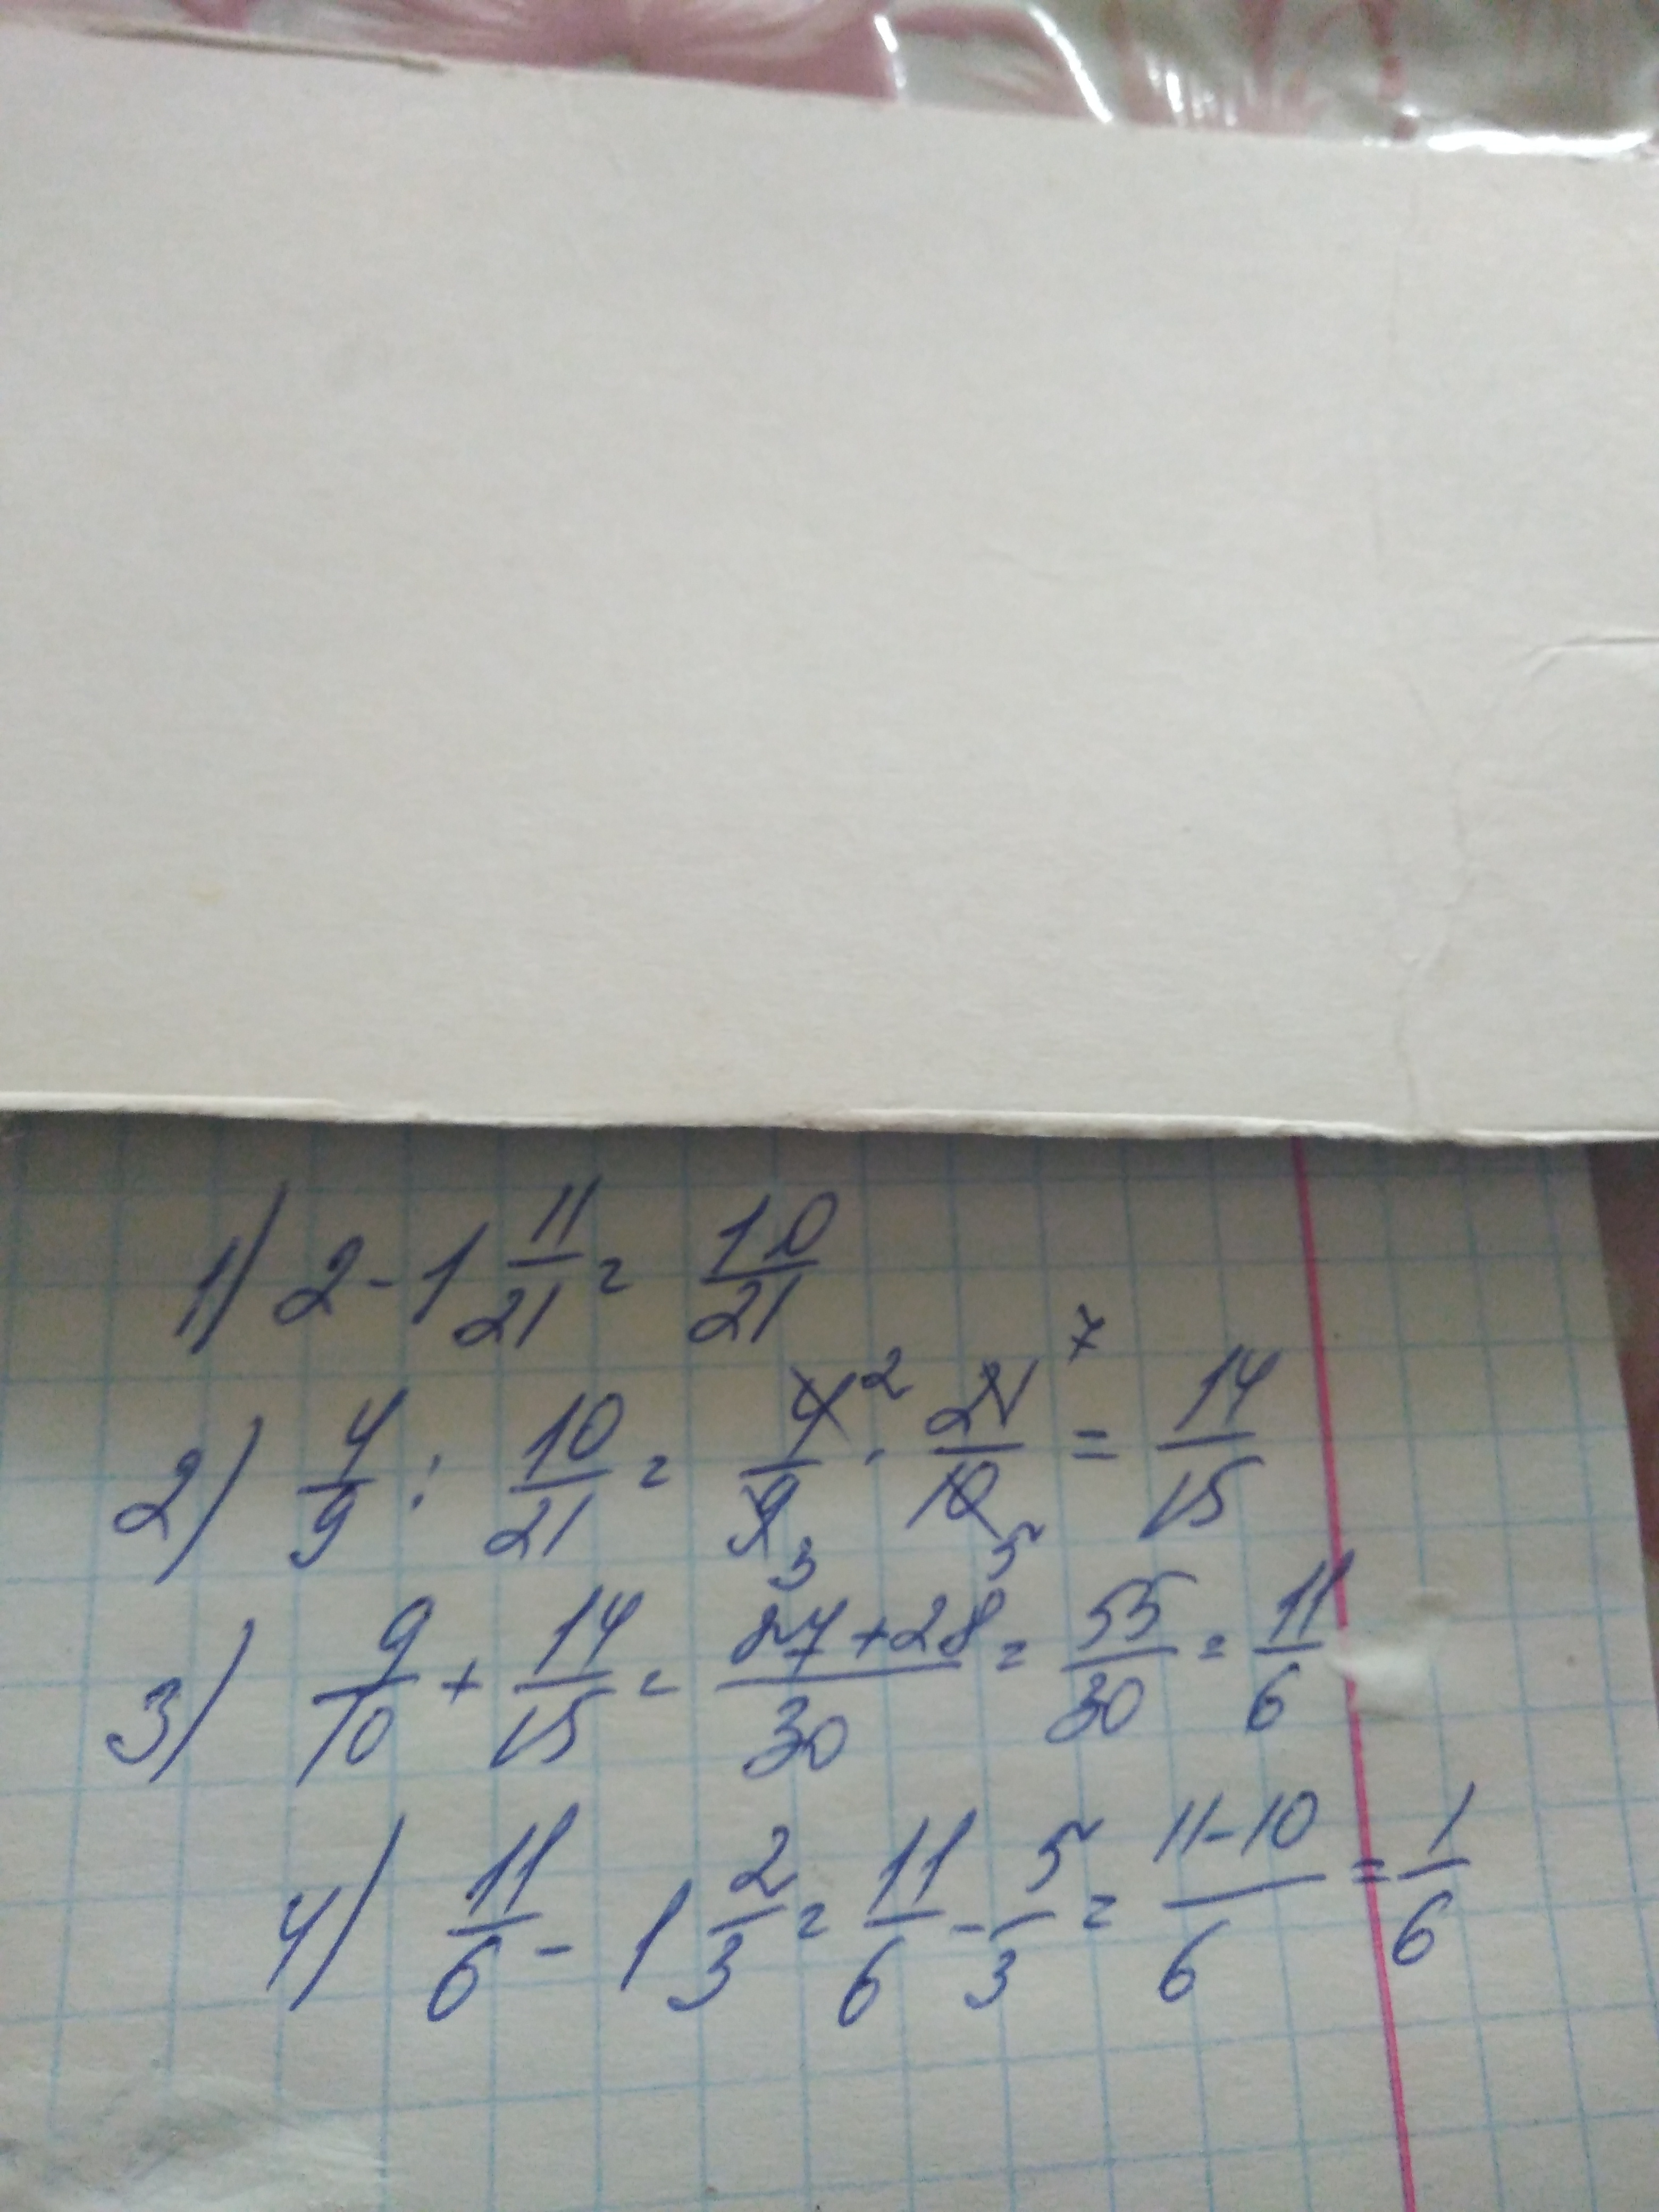 1) 2 - 1 11/21 = 10/21
2) 4/9 : 10/21 = 4 2/9 3 · 21 7/10 5 = 14/15
3) 9/10 + 14/15 = 27+28/30 = 55/30 = 11/6
4) 11/6 - 1 2/3 = 11/6 - 5/3 = 11-10/6 = 1/6